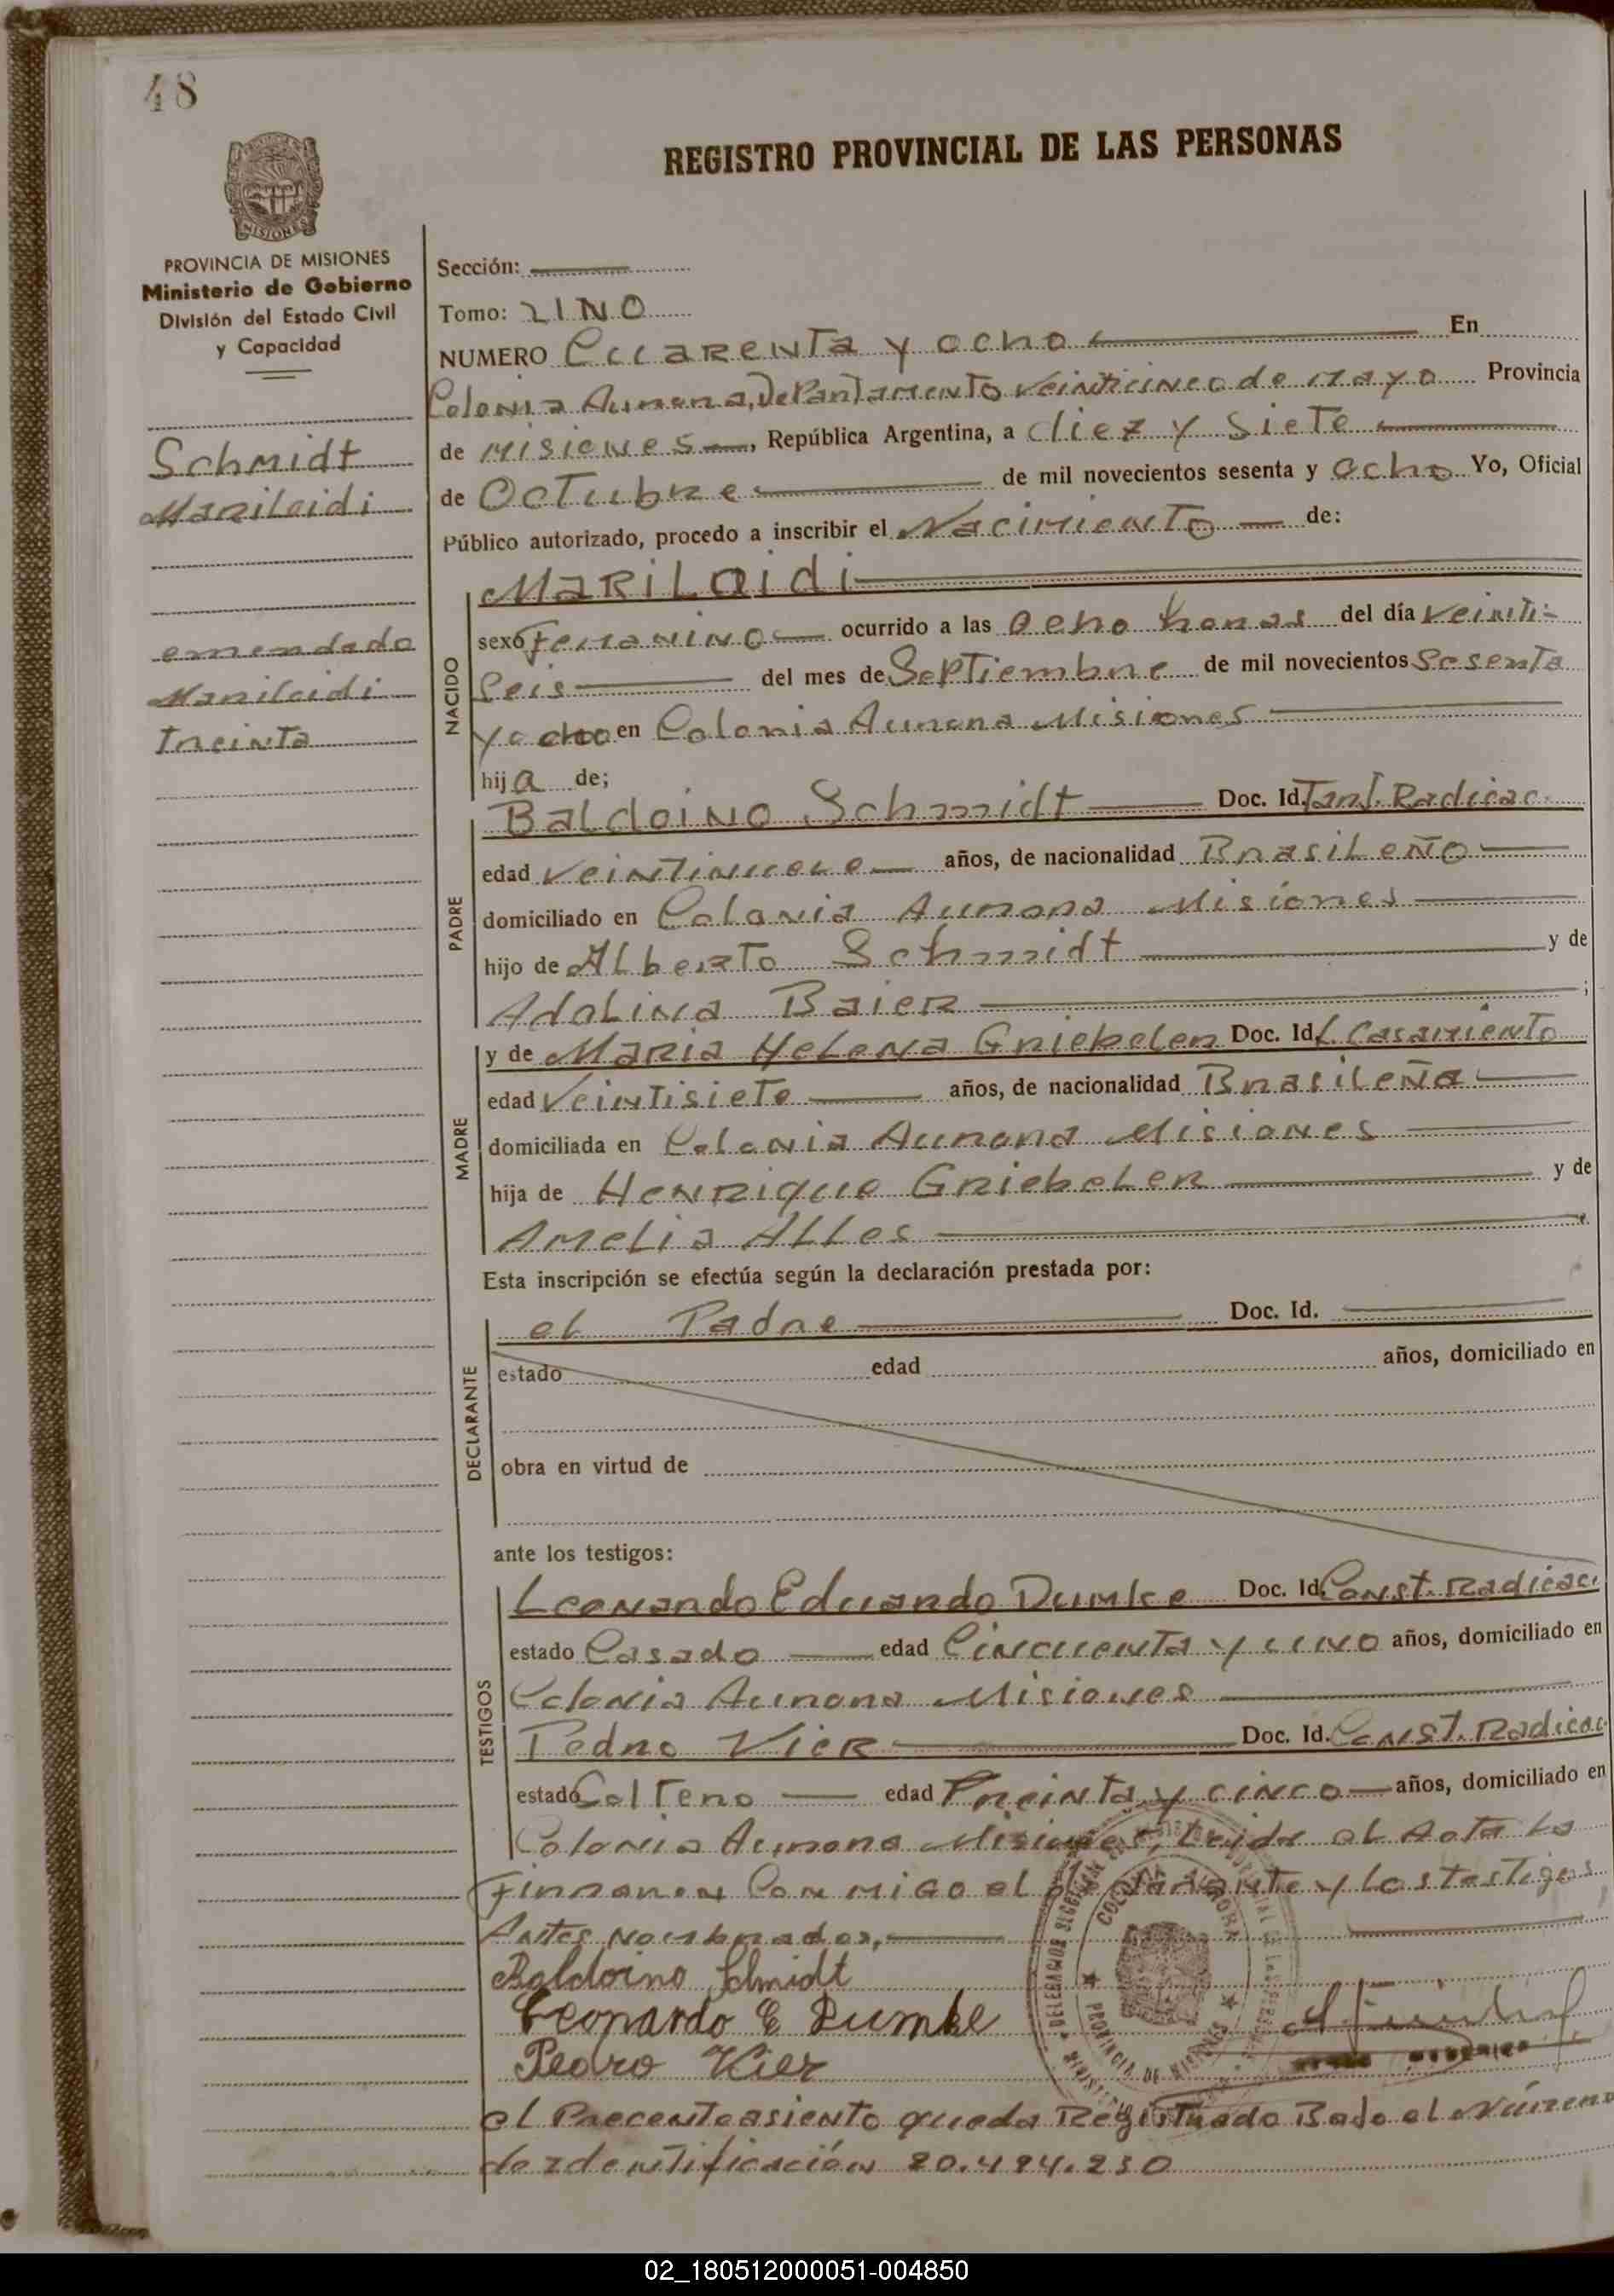 48
REGISTRO PROVINCIAL DE LAS PERSONAS
MISIONES
PROVINCIA DE MISIONES
Ministerio de Gobierno
División del Estado Civil
y Capacidad
Schmidt
Mariloidi
emendado
Mariloidi
treinta
Sección:
Tomo: UNO
NUMERO Cuarenta y ocho En
Colonia Aurora, Departamento Veinticinco de Mayo Provincia
de Misiones, República Argentina, a diez y siete
de Octubre de mil novecientos sesenta y ocho Yo, Oficial
Público autorizado, procedo a inscribir el Nacimiento de:
NACIDO
Mariloidi
sexo Femenino ocurrido a las ocho horas del día Veinti-
seis del mes de Septiembre de mil novecientos sesenta
y ocho en Colonia Aurora Misiones
hija de;
PADRE
Baldoino Schmidt Doc. Id. Tarj. Radicac.
edad veintinueve años, de nacionalidad Brasileño
domiciliado en Colonia Aurora Misiones
hijo de Alberto Schmidt y de
Adolina Baier;
MADRE
y de Maria Helena Griebeler Doc. Id L. Casamiento
edad Veintisiete años, de nacionalidad Brasileña
domiciliada en Colonia Aurora Misiones
hija de Henrique Griebeler y de
Amelia Alles
Esta inscripción se efectúa según la declaración prestada por:
DECLARANTE
el Padre Doc. Id.
estado edad años, domiciliado en
obra en virtud de
ante los testigos:
TESTIGOS
Leonardo Eduardo Dumke Doc. Id. Const. Radicac.
estado Casado edad Cincuenta y uno años, domiciliado en
Colonia Aurora Misiones
Pedro Vier Doc. Id. Const. Radicac
estado Solteno edad Treinta y cinco años, domiciliado en
Colonia Aurora Misiones, Leida el Acta La
Firmaron Conmigo el declarante y los testigos
Antes Nombrados,
Baldoino Schmidt
Leonardo E Dumke
Pedro Vier
COLONIA AURORA
PROVINCIA DE MISIONES
el Precente asiento queda Registrado Bajo el Número
de Identificación 20.494.230
02_180512000051-004850